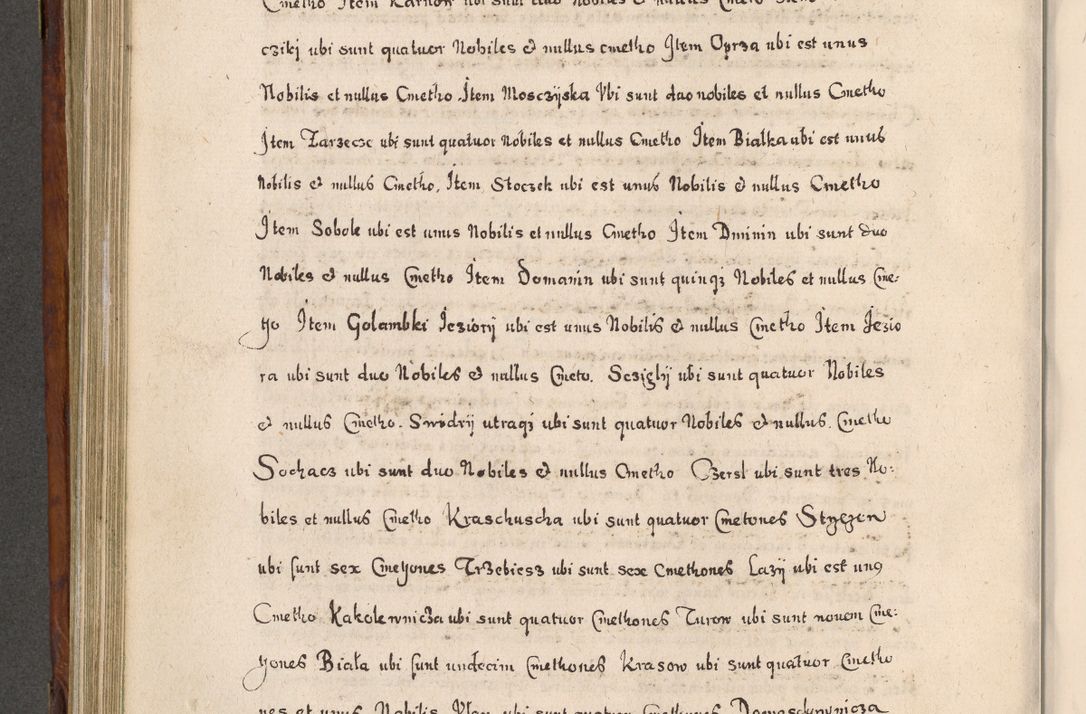 Cmetho Item Karnow ubi sunt duo Nobiles & nullus Cmeto Item
cziki ubi sunt quatuor Nobiles & nullus cmetho Item Oprza ubi est unus
Nobilis et nullus Cmetho. Item Mosczÿska Vbi sunt duo nobiles et nullus Cmetho
Item Zarzecze ubi sunt quatuor nobiles et nullus Cmetho Item Białka ubi est unus
Nobilis & nullus Cmetho. Item Stoczek ubi est unus Nobilis & nullus Cmetho
Item Sobole ubi est unus Nobilis et nullus Cmetho Item Dminin ubi sunt duo
Nobiles & nullus Cmetho Item Domanin ubi sunt quinqȝ Nobiles et nullus Cme:
tjo Item Golambki Jeziorÿ ubi est unus Nobilis & nullus Cmetho Item Jezio
ra ubi sunt duo Nobiles & nullus Cmeto. Sczÿglÿ ubi sunt quatuor Nobiles
& nullus Cmetho. Swidrÿ utraqȝ ubi sunt quatuor Nobiles & nullus. Cmetho
Sochacz ubi sunt duo Nobiles & nullus Cmetho Czersl ubi sunt tres No:
biles et nullus Cmetho Kraschuscha ubi sunt quatuor Cmetones Stÿczen
ubi sunt sex Cmetjones Trzebiesz ubi sunt sex Cmethones Lazÿ ubi est unꝯ
Cmetho Kakolewnicza ubi sunt quatuor Cmethones Turow ubi sunt novem Cme:
tjones Biała ubi sunt undecim Cmethones Krasow ubi sunt quatuor Cmetho
nes et unus Nobilis Vlan ubi sunt quatuor Cmethones Domaschewnicza